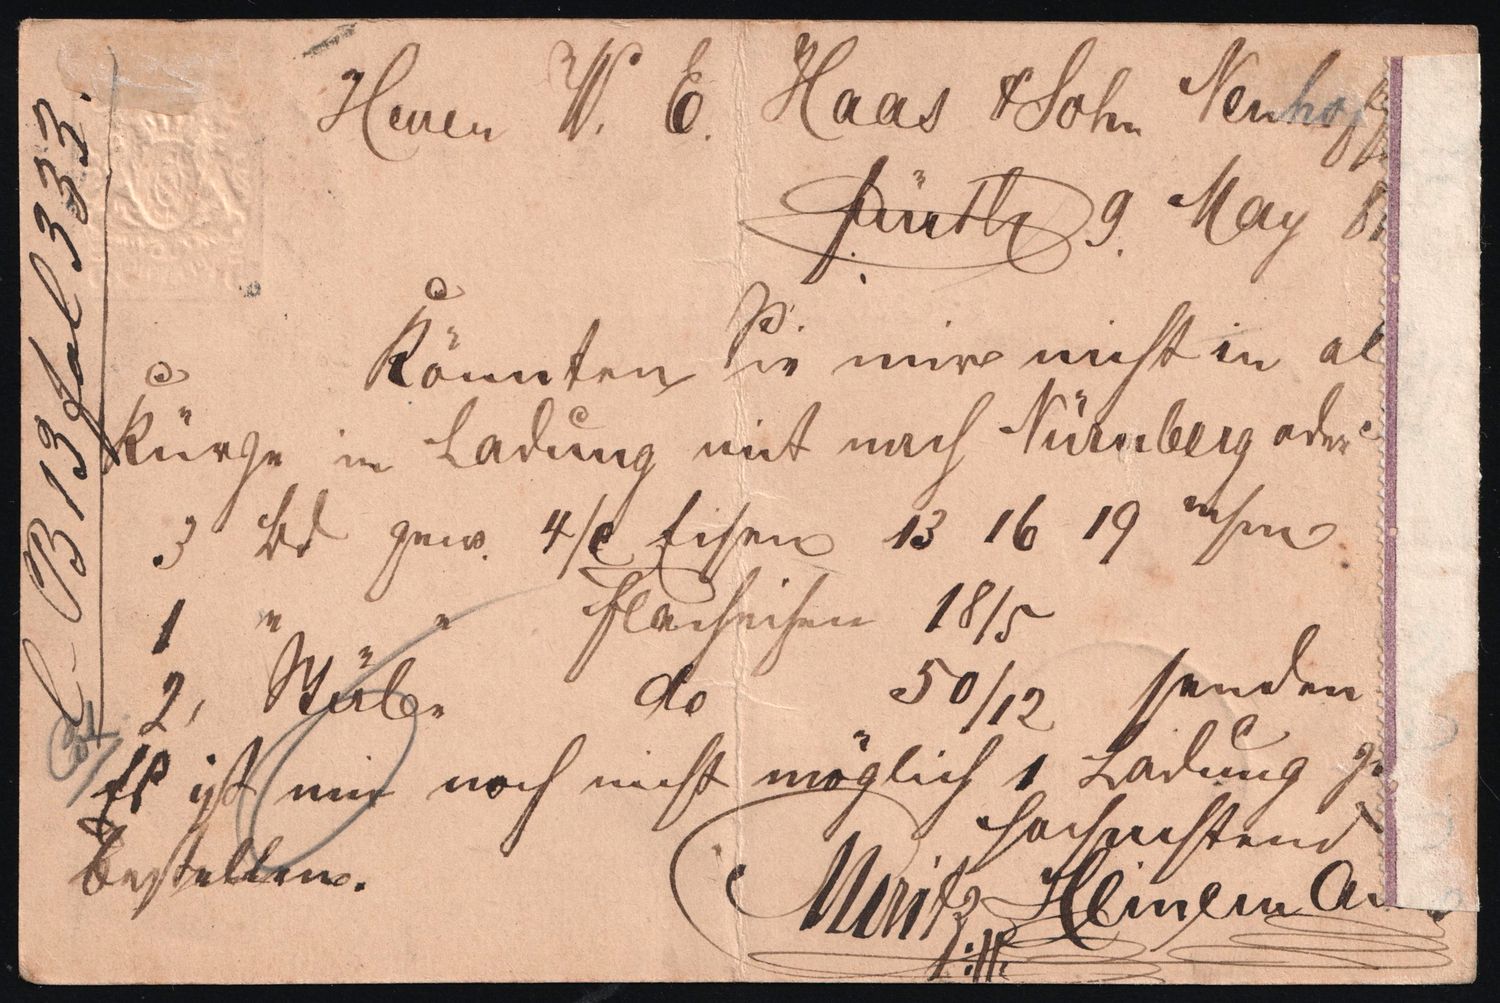 Herren W. E. Haas & Sohn Neuhoff
Fürth 9. May 8
Könnten Sie mir nicht in al
Kürze in Ladung mit nach Nürnberg oder
3 Bd gew. 4/c Eisen 13 16 19
1 " " Flacheisen 18/5
2, Stäbe do 50/12 senden
Es ist mir noch nicht möglich 1 Ladung zu
bestellen.
Hochachtend
Moritz Heineman
L. B 13 fol 333.